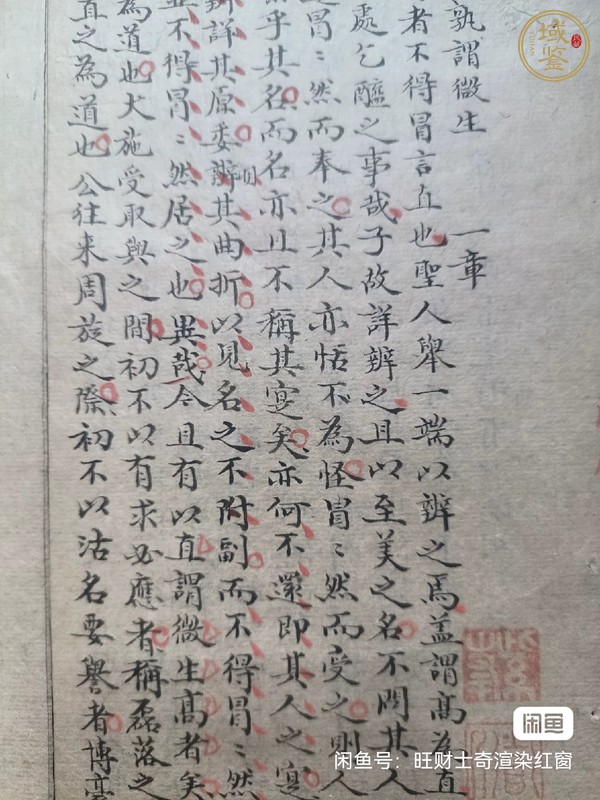 孰謂微生 一章
者不得冒言直也聖人舉一端以辨之焉蓋謂高為直
處乞醯之事哉子故詳辨之且以至美之名不問其人
冒〻然而奉之其人亦恬不為怪冒〻然而受之則人
乎其名而名亦且不稱其寔矣亦何不還即其人之寔
辨詳其原委辨其曲折以見名之不附副而不得冒〻然
不得冒〻然居之也異哉今且有以直謂微生髙者矣
為道也夫施受取與之間初不以有求必應者稱磊落之
直之為道也公往来周旋之際初不以沽名要譽者博
域鉴
闲鱼
闲鱼号：旺财士奇渲染红窗